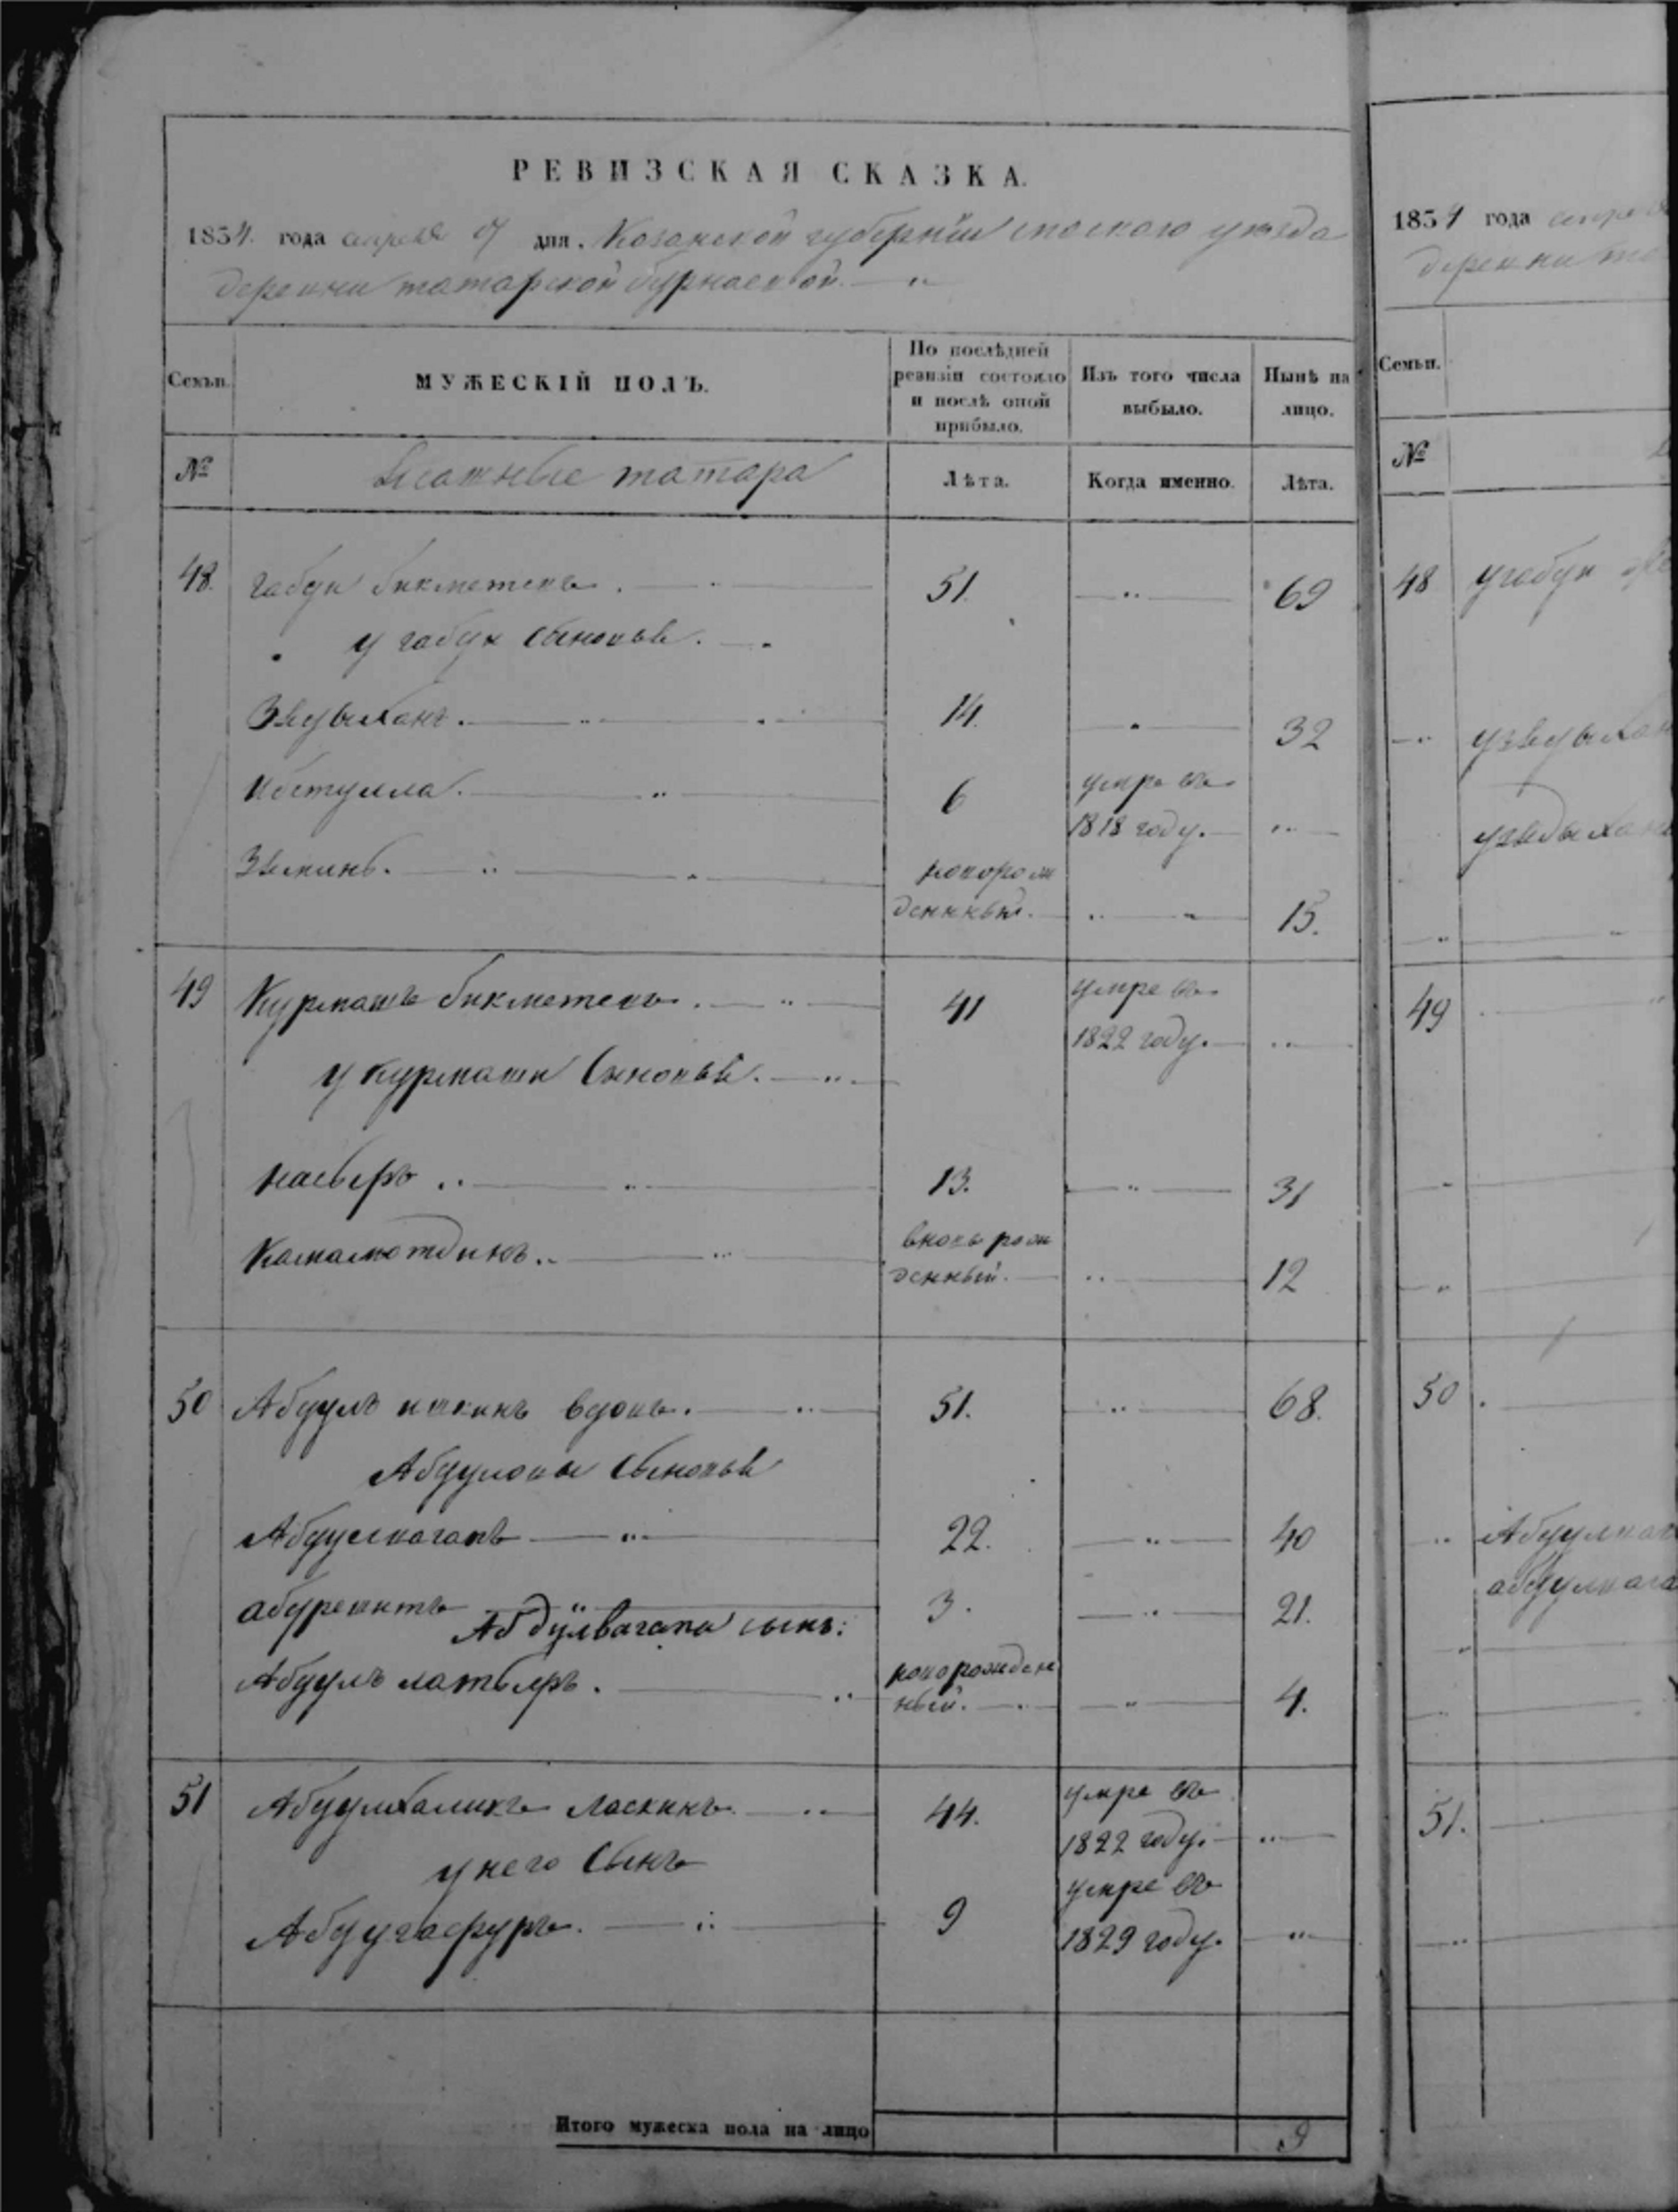 РЕВИЗСКАЯ СКАЗКА.
1834. года апреля 9 дня. Казанской губернии спаского уезда
деревни татарской бурнаевой.
Семьи.
МУЖЕСКІЙ ПОЛЪ.
По послѣдней ревизіи состояло и послѣ оной прибыло.
Изъ того числа выбыло.
Нынѣ на лицо.
№
татара
Лѣта.
Когда именно.
Лѣта.
48. габук бикметевъ. 51. 69
у габук сыновья.
14. 32
6 умре въ
1818 году.
новорож
денный. 15.
49 Курмашъ бикметевъ. 41 умре въ
1822 году.
у курмаши сыновья.
насыръ 13. 31
Камалютдинъ. вновь рож
денный. 12
50 Абдулъ вдовъ. 51. 68.
Абдуловы сыновья
Абдулвагапъ 22. 40
абдрешитъ 3. 21.
Абдулвагапа сынъ:
Абдулъ латыпъ. новорожден
ный. 4.
51 Абдулхаликъ ласкинъ. 44. умре въ
1822 году.
у него сынъ
Абдугафуръ. 9 умре въ
1829 году.
Итого мужеска пола на лицо 9
1834 года апреля
деревни та
Семьи.
№
48 у габук
49
50
Абдулваг
абдулвага
51.